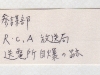 参謀部
R.C.A 放送局
送電所自爆の跡